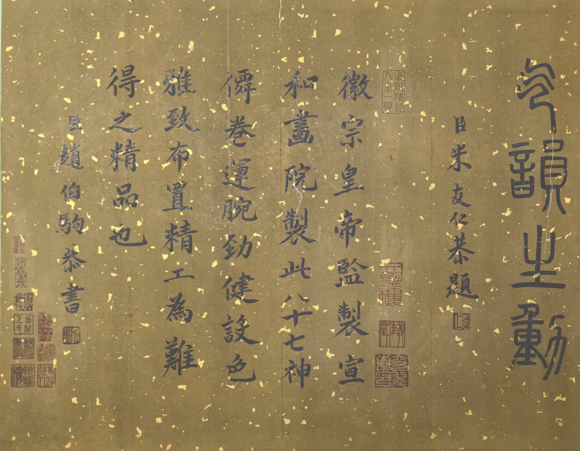 氣韻生動
臣米友仁恭題
徽宗皇帝監製宣
和畫院製此八十七神
僊卷運腕勁健設色
雅致布置精工為難
得之精品也
臣趙伯駒恭書